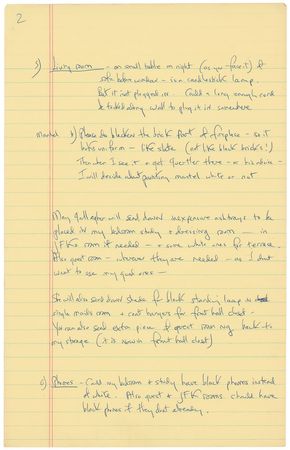 2
3) Living room - on small table on right (as you face it) of
sofa before window - is a candlestick lamp.
But it isn't plugged in. Could a long enough cord
be tacked along wall to plug it in somewhere
Mantel b) Please do blacken the brick part of fireplace - so it
looks uniform - like slate (not like black bricks!)
Then when I see it + get
I will decide about painting mantel white or not
Mary Gallagher will send down inexpensive ashtrays to be
placed in my bedroom study + dressing room - in
JFKs room if needed - + some white ones for terrace.
Also guest room - wherever they are needed - as I don't
want to use my good ones -
She will also send down shade for black standing lamp in
single maids room + coat hangers for front hall closet -
You can also send extra piece of guest room rug back to
my storage (it is now in front hall closet)
c) Phones - Could my bedroom + study have black phones instead
of white. Also guest + JFK rooms should have
black phones if they don't already.